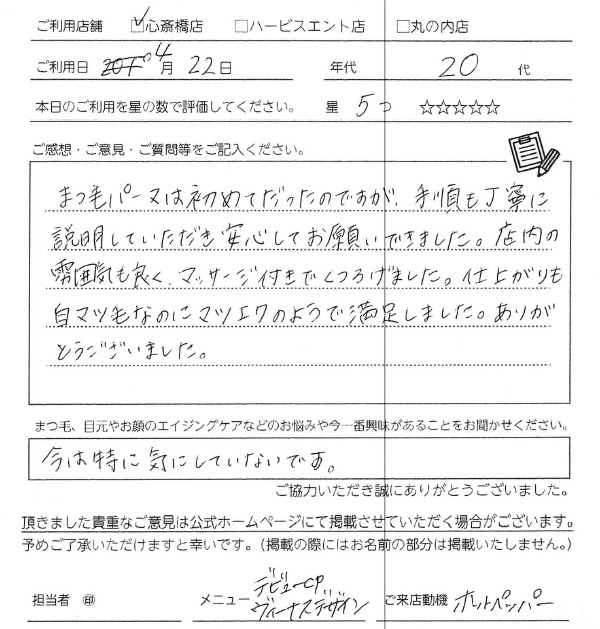 ご利用店舗 ☑心斎橋店 □ハービスエント店 □丸の内店
ご利用日 4月 22日 年代 20 代
本日のご利用を星の数で評価してください。 星 5つ ☆☆☆☆☆
ご感想・ご意見・ご質問等をご記入ください。
まつ毛パーマは初めてだったのですが、手順も丁寧に
説明していただき安心してお願いできました。店内の
雰囲気も良く、マッサージ付きでくつろげました。仕上がりも
自マツ毛なのにマツエクのようで満足しました。ありが
とうございました。
まつ毛、目元やお顔のエイジングケアなどのお悩みや今一番興味があることをお聞かせください。
今は特に気にしていないです。
ご協力いただき誠にありがとうございました。
頂きました貴重なご意見は公式ホームページにて掲載させていただく場合がございます。
予めご了承いただけますと幸いです。（掲載の際にはお名前の部分は掲載いたしません。）
デビューCP
担当者 ㊞ メニュー ヴィーナスデザイン ご来店動機 ホットペッパー